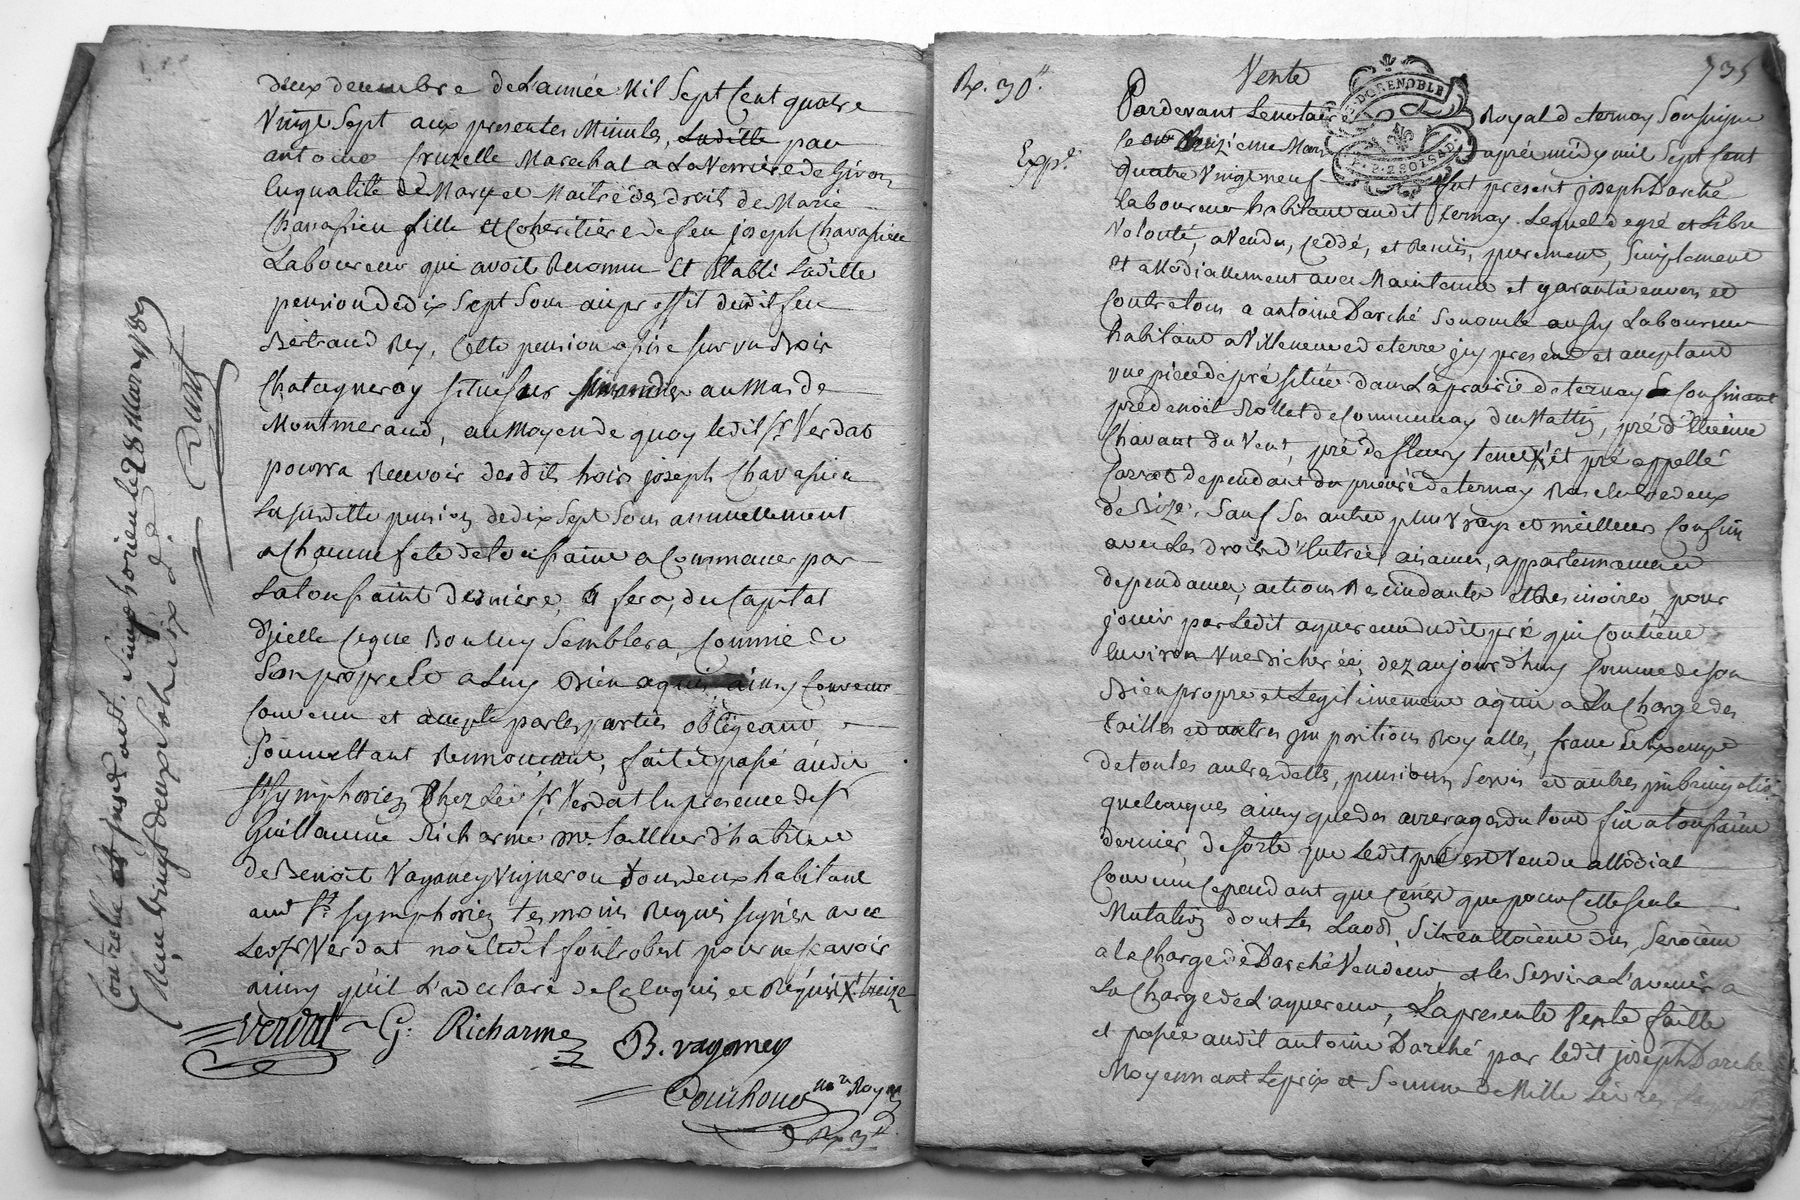 deux decembre de L'année Mil Sept Cent quatre
Vingt Sept aux presentes Minutes, Laditte par
antoine Cruzelle Marechal a La Verrière de Givors
En qualité de Mary et Maitre des droits de Marie
Chavassieu fille et Coheritiere de feu joseph Chavassieu
Laboureur qui avoit Reconnu Et Etabli Laditte
pension de dix Sept Sous au proffit dudit feu
Bertrand Rey, Cette pension assise sur un Bois
Chataigneray situé sur au Mas de
Montmeraud, au Moyen de quoy ledit Sr Verdat
pourra Recevoir desdits hoirs joseph Chavassieu
La susditte pension de dix Sept Sous annuellement
a Chacune fete de toussaint a Commancer par
La toussaint derniere, & fera, du Capital
D'icelle Ce que Bon luy Semblera, Comme de
Son propre et a Luy Bien aquis, ainsy Convenu
Convenu et accepté par les parties obligeant
Soumettant Renonceant, fait et passé audit
St Symphorien Chez Led. Sr Verdat En presence de Sr
Guillaume Richarme Me tailleur d'habits et
de Benoit Vaganey Vigneron tous deux habitant
audt St Symphorien temoins Requis signés avec
Led. Sr Verdat non ledit pour ne scavoir
ainsy qu'il L'a declaré de Ce Enquis et Requis X treize
Verdat G: Richarme
B. vaganey
nore Royal
Rx 3tt
Controllé et Insé audt. Simphorien le 28 Mars 1789
Reçu vingt deux sols six d.
Vente
735
Rx. 30tt
Exppé
D. GRENOBLE
Pardevant Le notaire Royal de ternay Soussigné
Le treizieme Mars après midy mil Sept Cent
quatre Vingt neuf fut présent joseph Darché
Laboureur habitant audit ternay. Lequel de gré et Libre
Volonté, a Vendu, Ceddé, et Remis, purement, Simplement
et allodiallement avec Maintenue et garantie envers et
Contre tous a antoine Darché Son oncle aussy Laboureur
habitant a Villeneuve de terre jcy present et acceptant
une piece de pré située dans La prairie de ternay Confinant
pré de noël Rollet de Communay du Matin, pré d'Etienne
Chavant du Vent, pré de fleury X et pré appellé
Carret dependant du prieuré de ternay
de Bize. Sauf Ses autres plus Vrays et meilleurs Confins
avec Les droits d'Entrée, aisances, appartenances
dependances, actions Rescindantes et Rescisoires, pour
jouir par Ledit aquereur dudit pré qui Contient
Environ une Bicherée, dez aujourd'huy Comme de son
Bien propre et Legitimement aquis a La Charge des
tailles et autres jmpositions Royalles, franc Et Exempt
de toutes autres dettes, pensions Servis et autres
quelconques ainsy que des arrerages du tout a toussaint
dernier, de sorte que Ledit pré est Vendu allodial
Convenu Cependant que Ce n'est que pour Cette seule
Mutation dont Les Laods, S'il en etoient dus, Seroient
a la Charge de Darché Vendeur, et les Servis a L'avenir a
La Charge de L'aquereur, La presente Vente faitte
et passée audit antoine Darché par ledit joseph Darché
Moyennant Le prix et Somme de Mille Livres